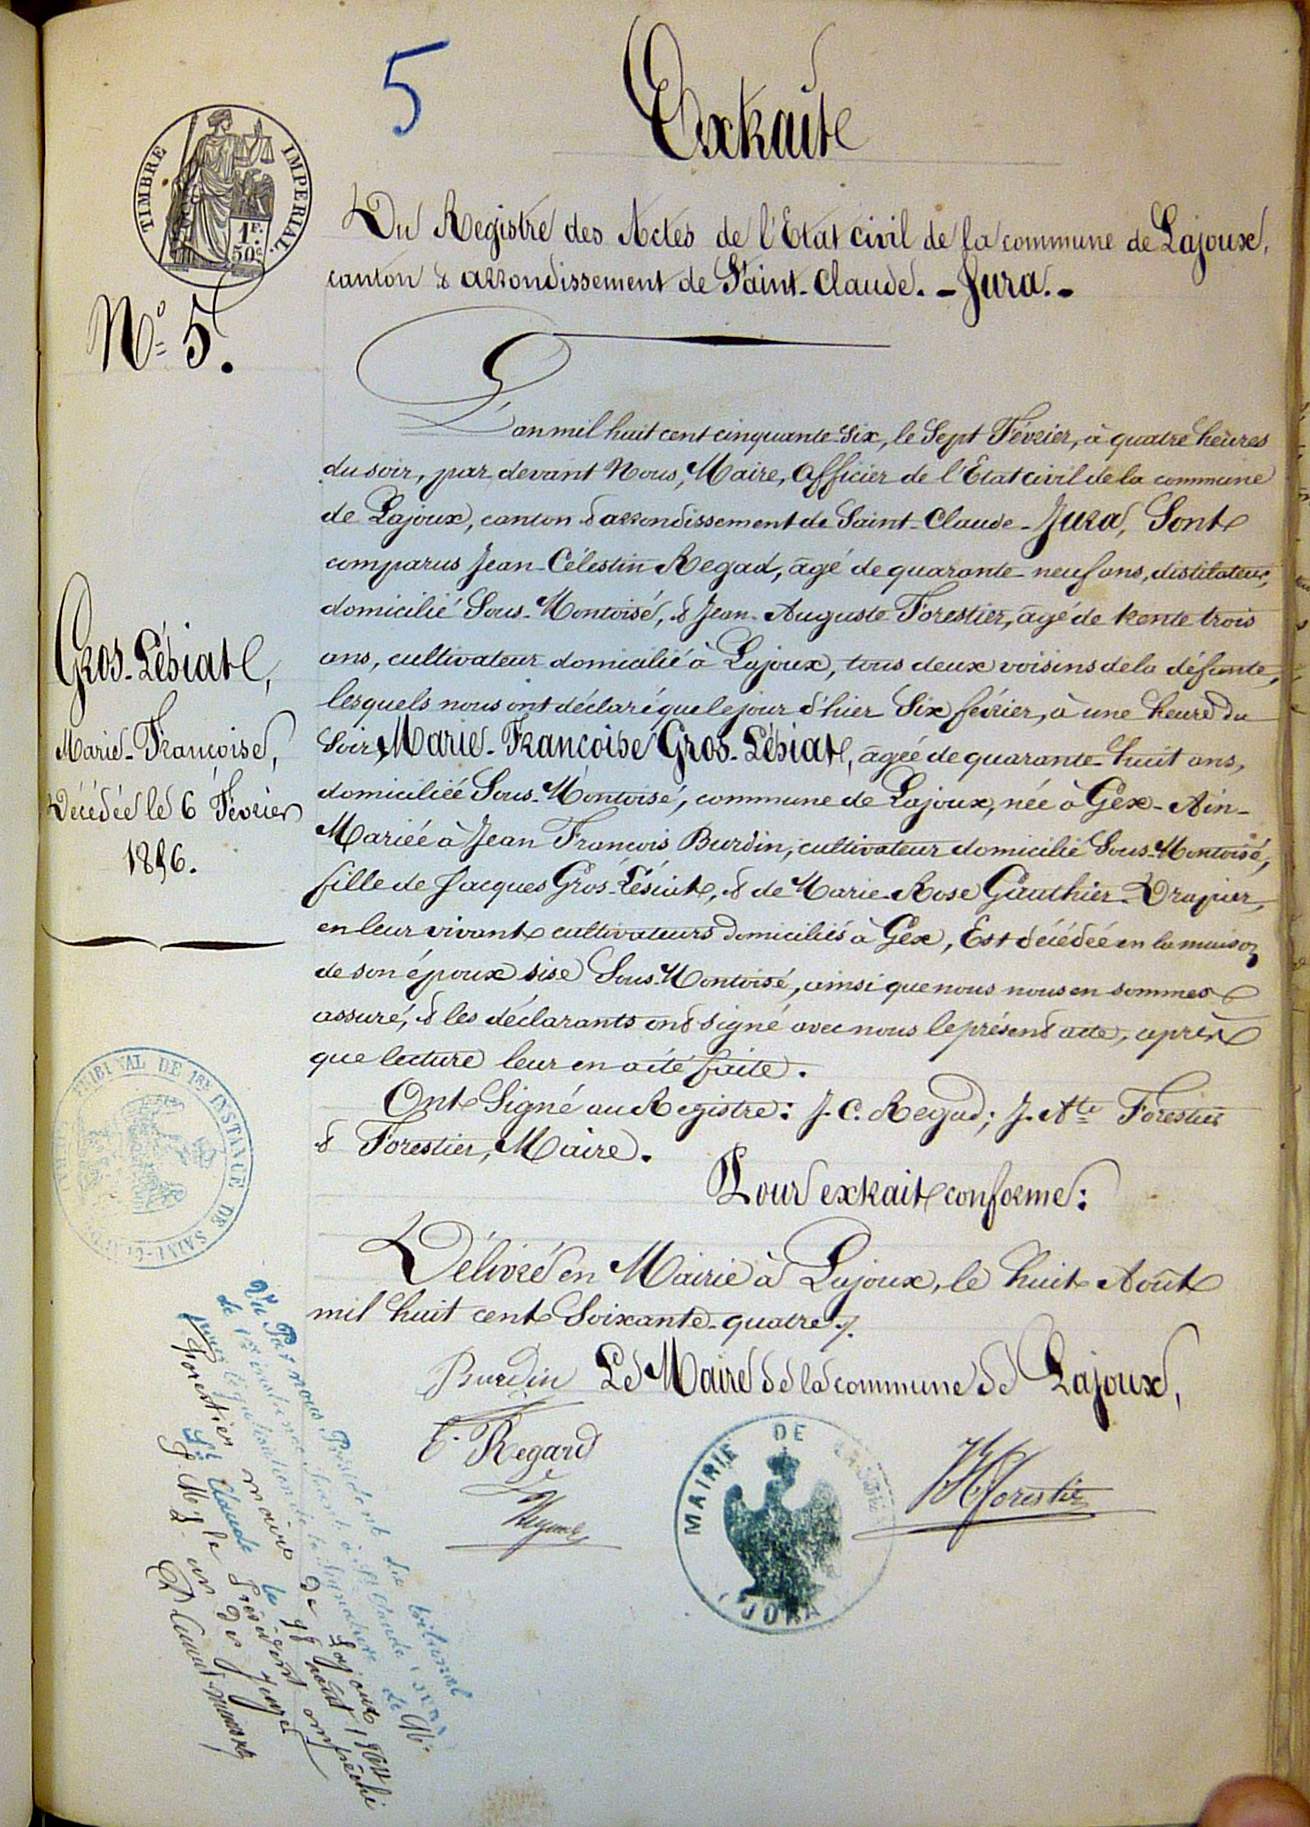 5
Extrait
TIMBRE IMPERIAL
1F. 50c
Du Registre des Actes de l'Etat civil de la commune de Lajoux,
canton & arrondissement de Saint-Claude. - Jura. -
No 5.
L'an mil huit cent cinquante-six, le Sept Février, à quatre heures
du soir, par devant Nous, Maire, Officier de l'Etat civil de la commune
de Lajoux, canton & arrondissement de Saint-Claude - Jura, Sont
comparus Jean-Célestin Regad, âgé de quarante-neuf ans, distilateur,
domicilié Sous-Montoisé, & Jean-Auguste Forestier, âgé de trente trois
ans, cultivateur domicilié à Lajoux, tous deux voisins de la défunte,
lesquels nous ont déclaré que le jour d'hier Six février, à une heure du
Soir, Marie-Françoise Gros-Lésiat, âgéé de quarante-huit ans,
domiciliéé Sous-Montoisé, commune de Lajoux, née à Gex-Ain-
Mariéé à Jean François Burdin, cultivateur domicilié Sous-Montoisé,
fille de Jacques Gros-Lésiat, & de Marie-Rose Gauthier-Drapier,
en leur vivant cultivateurs domiciliés à Gex, Est décédéé en la maison
de son époux sise Sous-Montoisé, ainsi que nous nous en sommes
assuré, & les déclarants ont signé avec nous le présent acte, après
que lecture leur en a été faite.
Gros-Lésiat,
Marie-Françoise,
Décédée le 6 Février
1856.
Ont Signé au Registre: J. C. Regad; J. Ate Forestier
& Forestier, Maire.
Pour extrait conforme:
Délivré en Mairie à Lajoux, le huit Août
mil huit cent Soixante-quatre.
Burdin Le Maire de la commune de Lajoux,
Regard
Forestier
TRIBUNAL DE 1ERE INSTANCE DE SAINT-CLAUDE
MAIRIE DE LAJOUX
(JURA)
Vu Par nous Président du tribunal
de 1re instance séant à St Claude (Jura)
pour légalisation de la signature de Mr
Forestier maire de Lajoux
St Claude le 98 août 1864
P. Mr le Président empêché
L'un des juges